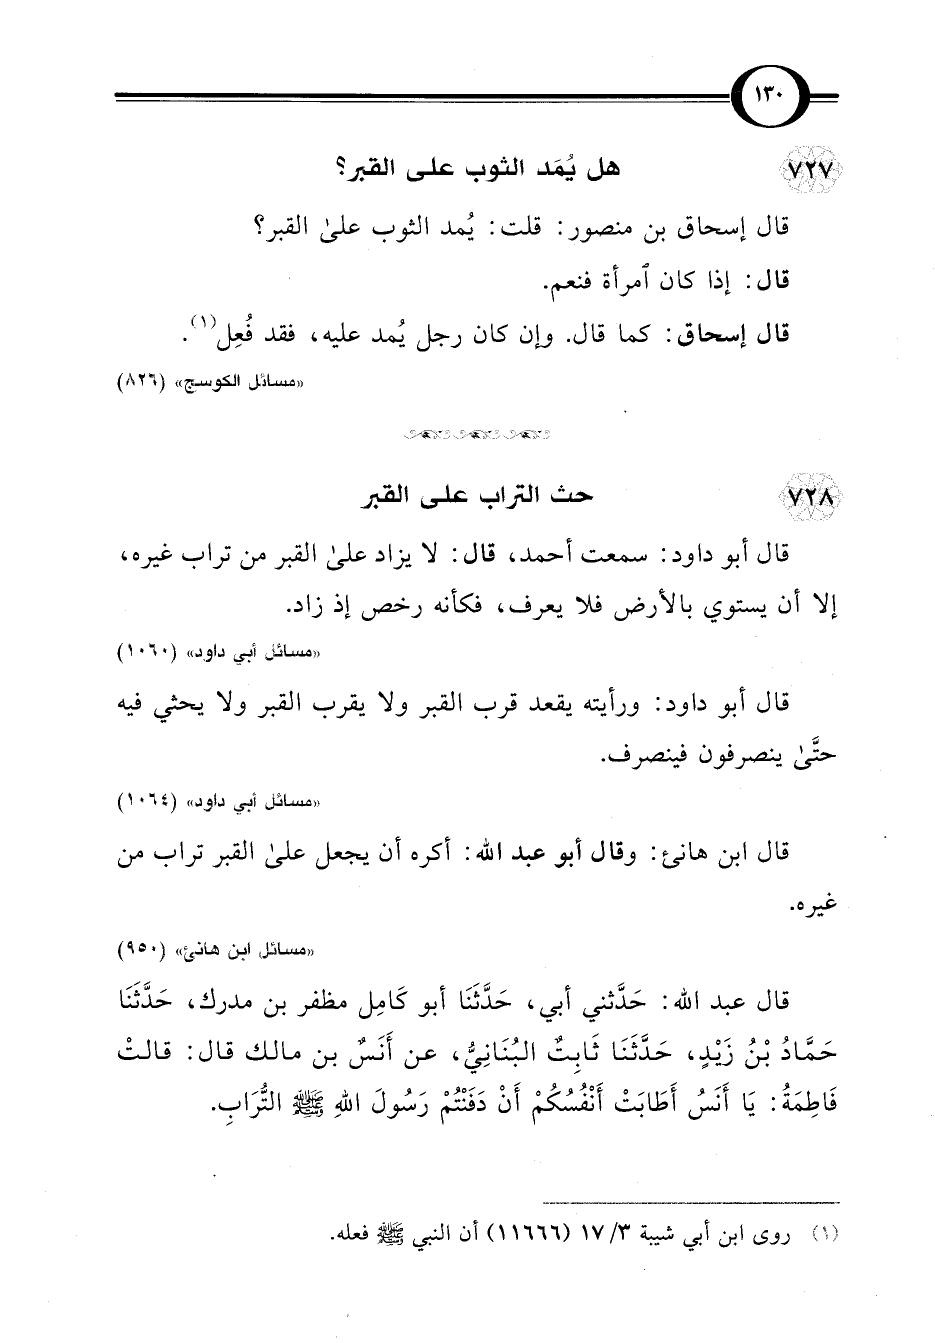 ١٣٠
٧٢٧ هل يُمَد الثوب على القبر؟
قال إسحاق بن منصور: قلت: يُمد الثوب علىٰ القبر؟
قال: إذا كان ٱمرأة فنعم.
قال إسحاق: كما قال. وإن كان رجل يُمد عليه، فقد فُعِل(١).
«مسائل الكوسج» (٨٢٦)
٧٢٨ حث التراب على القبر
قال أبو داود: سمعت أحمد، قال: لا يزاد علىٰ القبر من تراب غيره،
إلا أن يستوي بالأرض فلا يعرف، فكأنه رخص إذ زاد.
«مسائل أبي داود» (١٠٦٠)
قال أبو داود: ورأيته يقعد قرب القبر ولا يقرب القبر ولا يحثي فيه
حتَّىٰ ينصرفون فينصرف.
«مسائل أبي داود» (١٠٦٤)
قال ابن هانئ: وقال أبو عبد الله: أكره أن يجعل علىٰ القبر تراب من
غيره.
«مسائل ابن هانئ» (٩٥٠)
قال عبد الله: حَدَّثني أبي، حَدَّثَنَا أبو كَامِل مظفر بن مدرك، حَدَّثَنَا
حَمَّادُ بْنُ زَيْدٍ، حَدَّثَنَا ثَابِتٌ البُنَانِيُّ، عن أَنَسٌ بن مالك قال: قالتْ
فَاطِمَةُ: يَا أَنَسُ أَطَابَتْ أَنْفُسُكُمْ أَنْ دَفَنْتُمْ رَسُولَ اللهِ ﷺ التُّرَابِ.
(١) روى ابن أبي شيبة ٣/ ١٧ (١١٦٦٦) أن النبي ﷺ فعله.